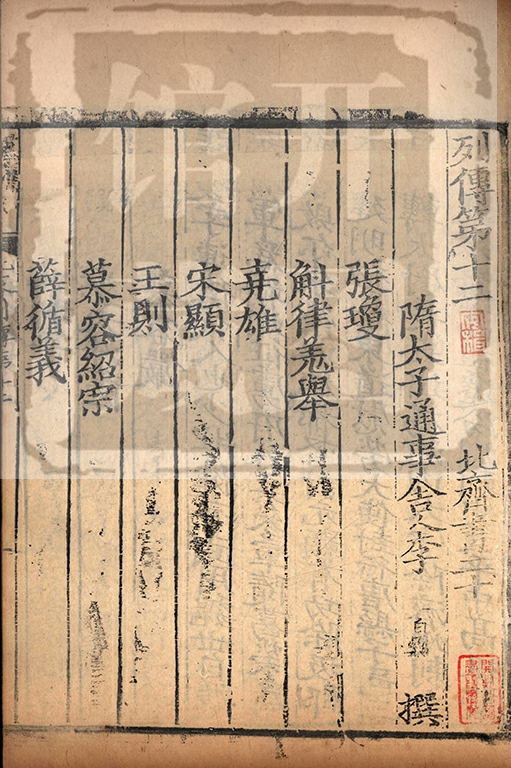 列傳第十二 北齊書二十
隋太子通事舍人李 百藥 撰
張瓊
斛律羗舉
堯雄
宋顯
王則
慕容紹宗
薛循義